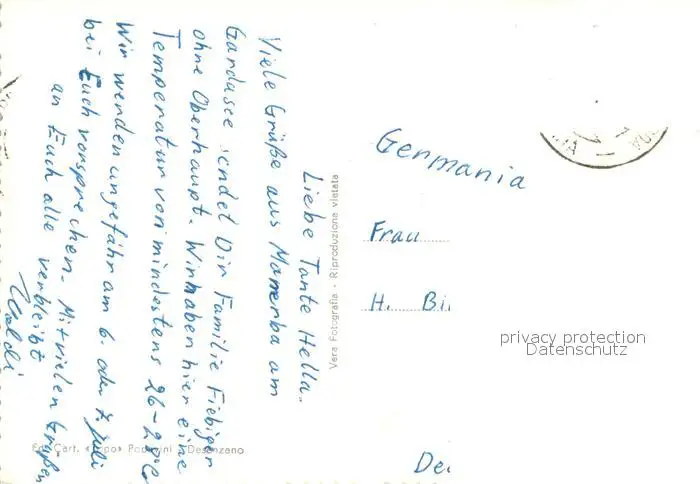 Liebe Tante Hella.
Viele Grüße aus Manerba am
Gardasee sendet Dir Familie Fiebiger
ohne Oberhaupt. Wir haben hier eine
Temperatur von mindestens 26-28°C
Wir werden ungefähr am 6. oder 7. Juli
bei Euch vorsprechen. Mit vielen Grüßen
an Euch alle verbleibt
Vera Fotografia - Riproduzione vietata
Ed. Cart. Desenzano
Germania
Frau
H. Bi.
De.
privacy protection
Datenschutz